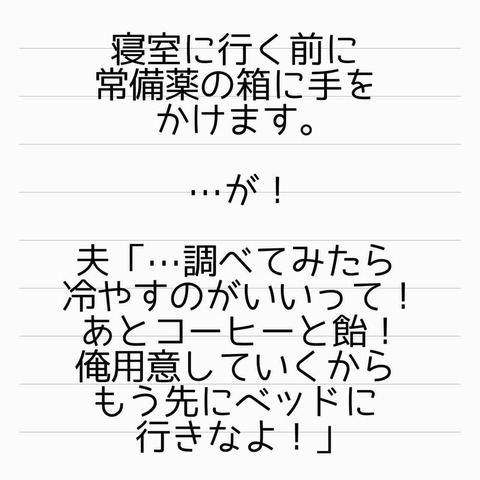 寝室に行く前に
常備薬の箱に手を
かけます。
…が！
夫「…調べてみたら
冷やすのがいいって！
あとコーヒーと飴！
俺用意していくから
もう先にベッドに
行きなよ！」